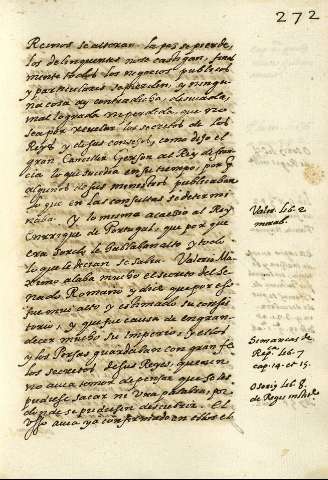 272
Reinos se alteran. la paz se pierde,
los delinquentes no se castigan, final
mente todos los negocios publicos
y particulares se pierden, y ningu
na cosa ay contradicha, desuiada,
mal lograda ni perdida, que no
sea por reuelar los secretos de los
Reyes y de sus consejos, como dijo el
gran Canciller Gerson al Rey de fran
cia lo que sucedia en su tiempo, por q
algunos de sus ministros publicaban
lo que en las consultas se determi
naba. Y lo mismo acaesio al Rey
Enrrique de Portugal, que por que
era sordo le hablaban alto y todo
lo que le decian se sabia. Valerio Ma
ximo alaba mucho el secreto del Se
nado Romano y dice que por esso
fue muy alto y estimado su consis
torio, y que fue causa de engran
decer mucho su Imperio: Y ellos
y los Persas guardaban con gran fe
los secretos de sus Reyes, que a ni
no auia temor de pensar que se les
pudiesse sacar ni Una palabra, por
donde se pudiessen descubrir. El
Vsso auia ya confirmado en ellos el
Valer. lib. 2
Simancas de
Rep. lib. 7
cap. 14. et 15.
Osorio lib. 8.
de Regis instit.